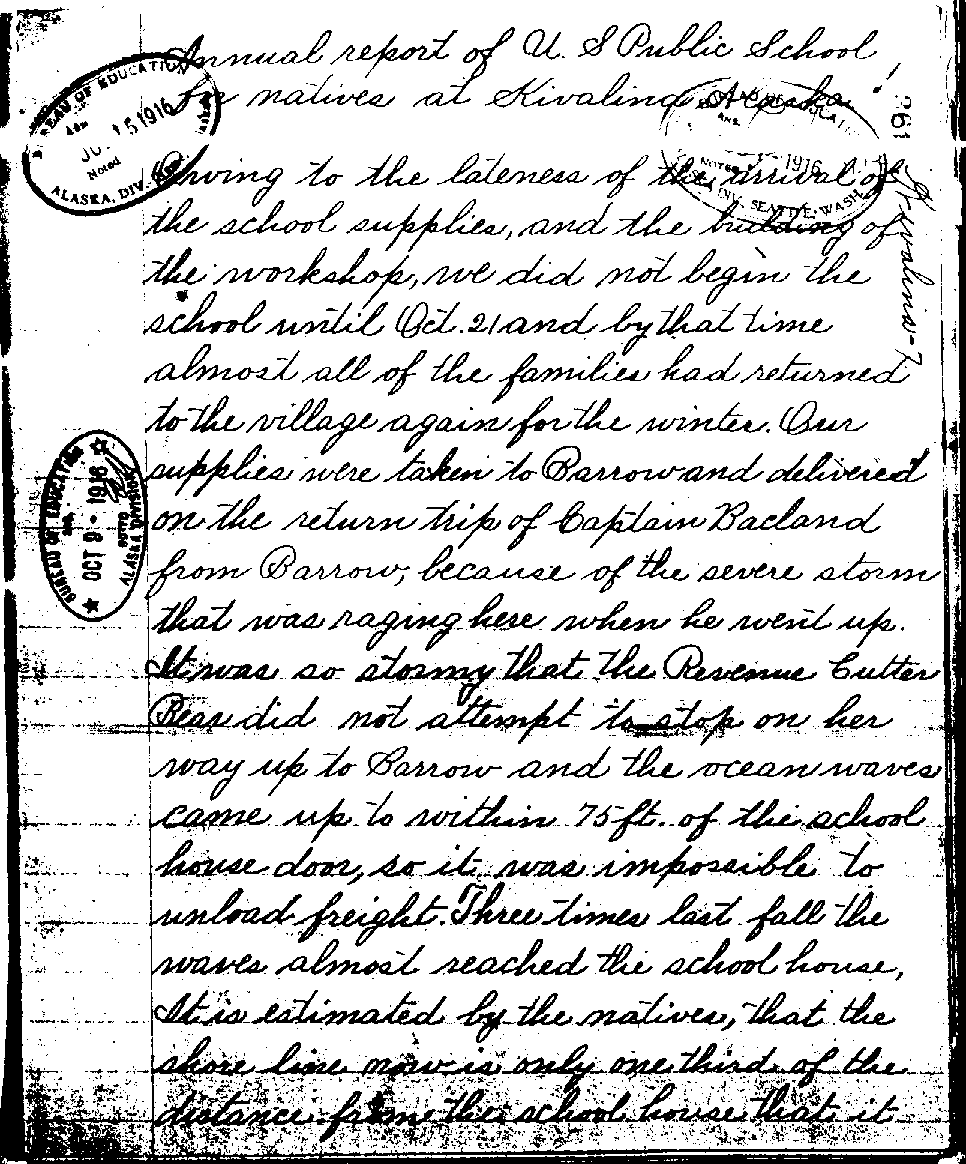 Annual report of U. S Public School
for natives at Kivalina Alaska.
Owing to the lateness of the arrival of
the school supplies, and the building of
the workshop, we did not begin the
school until Oct. 21 and by that time
almost all of the families had returned
to the village again for the winter. Our
supplies were taken to Barrow and delivered
on the return trip of Captain Bacland
from Barrow, because of the severe storm
that was raging here when he went up.
It was so stormy that the Revenue Cutter
Bear did not attempt to stop on her
way up to Barrow and the ocean waves
came up to within 75 ft. of the school
house door, so it was impossible to
unload freight. Three times last fall the
waves almost reached the school house,
It is estimated by the natives, that the
shore line now is only one third of the
distance from the school house that it
BUREAU OF EDUCATION
15 1916
Noted
ALASKA, DIV.
1916
DIV. SEATTLE, WASH.
BUREAU OF EDUCATION
OCT 9 - 1916
NOTED
ALASKA DIVISION